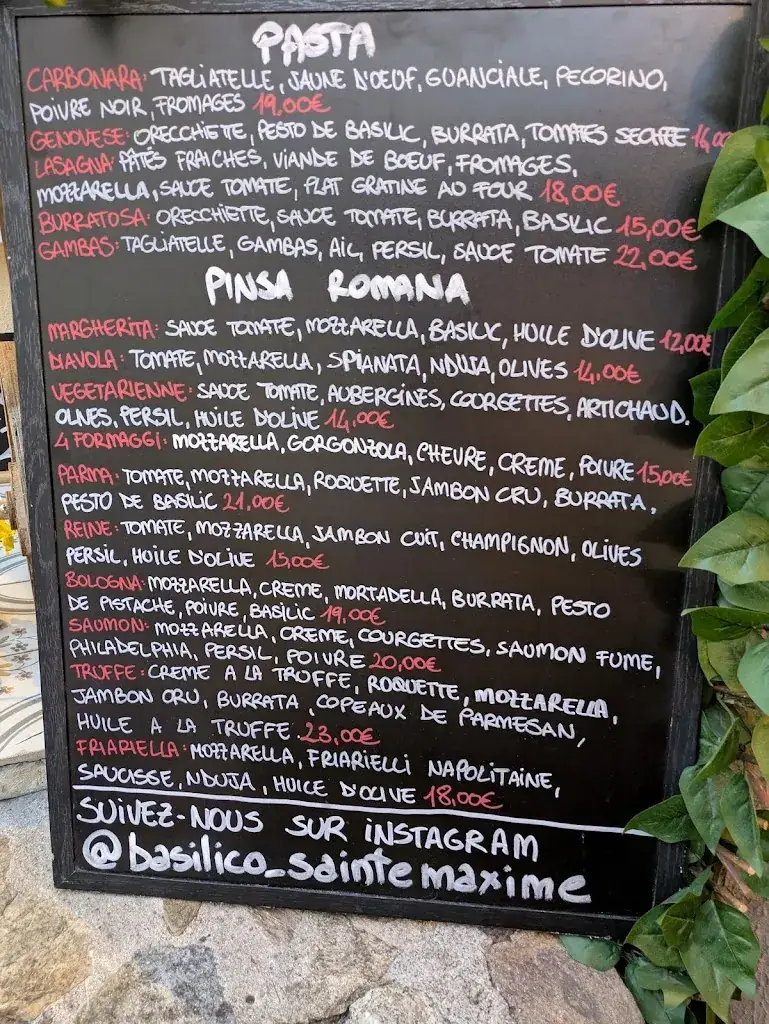 PASTA
CARBONARA: TAGLIATELLE, JAUNE D'OEUF, GUANCIALE, PECORINO,
POIVRE NOIR, FROMAGES 19,00€
GENOVESE: ORECCHIETTE, PESTO DE BASILIC, BURRATA, TOMATES SECHEE
LASAGNA: PÂTES FRAICHES, VIANDE DE BOEUF, FROMAGES,
MOZZARELLA, SAUCE TOMATE, PLAT GRATINE AU FOUR 18,00€
BURRATOSA: ORECCHIETTE, SAUCE TOMATE, BURRATA, BASILIC 15,00€
GAMBAS: TAGLIATELLE, GAMBAS, AIL, PERSIL, SAUCE TOMATE 22,00€
PINSA ROMANA
MARGHERITA: SAUCE TOMATE, MOZZARELLA, BASILIC, HUILE D'OLIVE 12,00€
DIAVOLA: TOMATE, MOZZARELLA, SPIANATA, NDUJA, OLIVES 14,00€
VEGETARIENNE: SAUCE TOMATE, AUBERGINES, COURGETTES, ARTICHAUD.
OLIVES, PERSIL, HUILE D'OLIVE 14,00€
4 FORMAGGI: MOZZARELLA, GORGONZOLA, CHEVRE, CREME, POIVRE 15,00€
PARMA: TOMATE, MOZZARELLA, ROQUETTE, JAMBON CRU, BURRATA,
PESTO DE BASILIC 21,00€
REINE: TOMATE, MOZZARELLA, JAMBON CUIT, CHAMPIGNON, OLIVES
PERSIL, HUILE D'OLIVE 15,00€
BOLOGNA: MOZZARELLA, CREME, MORTADELLA, BURRATA, PESTO
DE PISTACHE, POIVRE, BASILIC 19,00€
SAUMON: MOZZARELLA, CREME, COURGETTES, SAUMON FUME,
PHILADELPHIA, PERSIL, POIVRE 20,00€
TRUFFE: CREME A LA TRUFFE, ROQUETTE, MOZZARELLA,
JAMBON CRU, BURRATA, COPEAUX DE PARMESAN,
HUILE A LA TRUFFE 23,00€
FRIARIELLA: MOZZARELLA, FRIARIELLI NAPOLITAINE,
SAUCISSE, NDUJA, HUICE D'OLIVE 18,00€
SUIVEZ-NOUS SUR INSTAGRAM
@basilico_sainte maxime